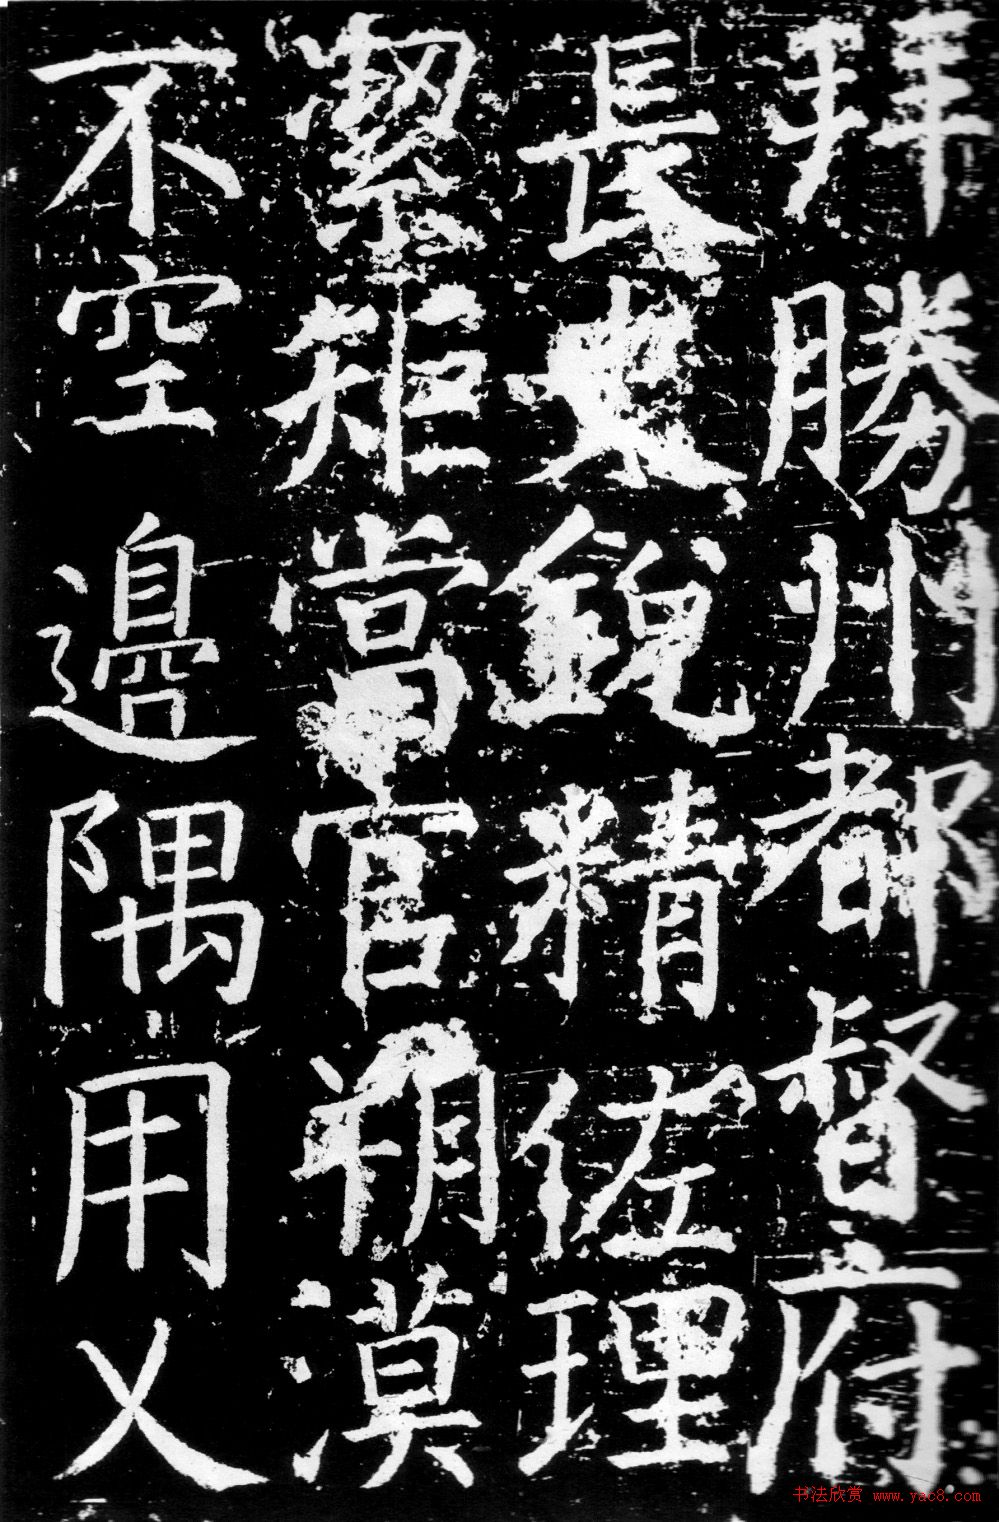 拜勝州都督府
長史銳精佐理
潔矩當官朔漠
不空邊隅用乂
书法欣赏 www.yac8.com